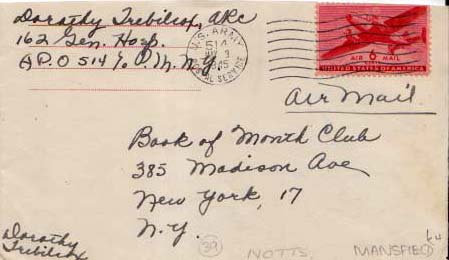 Dorothy Trebilcox, ARC
162 Gen. Hosp.
A.P.O 514 c/o P.M. N.Y.
U.S. ARMY
514
1945
POSTAL SERVICE
6
AIR MAIL
UNITED STATES OF AMERICA
Air Mail
Book of Month Club
385 Madison Ave
New York, 17
N.Y.
Dorothy
Trebilcox
39
NOTTS.
MANSFIELD